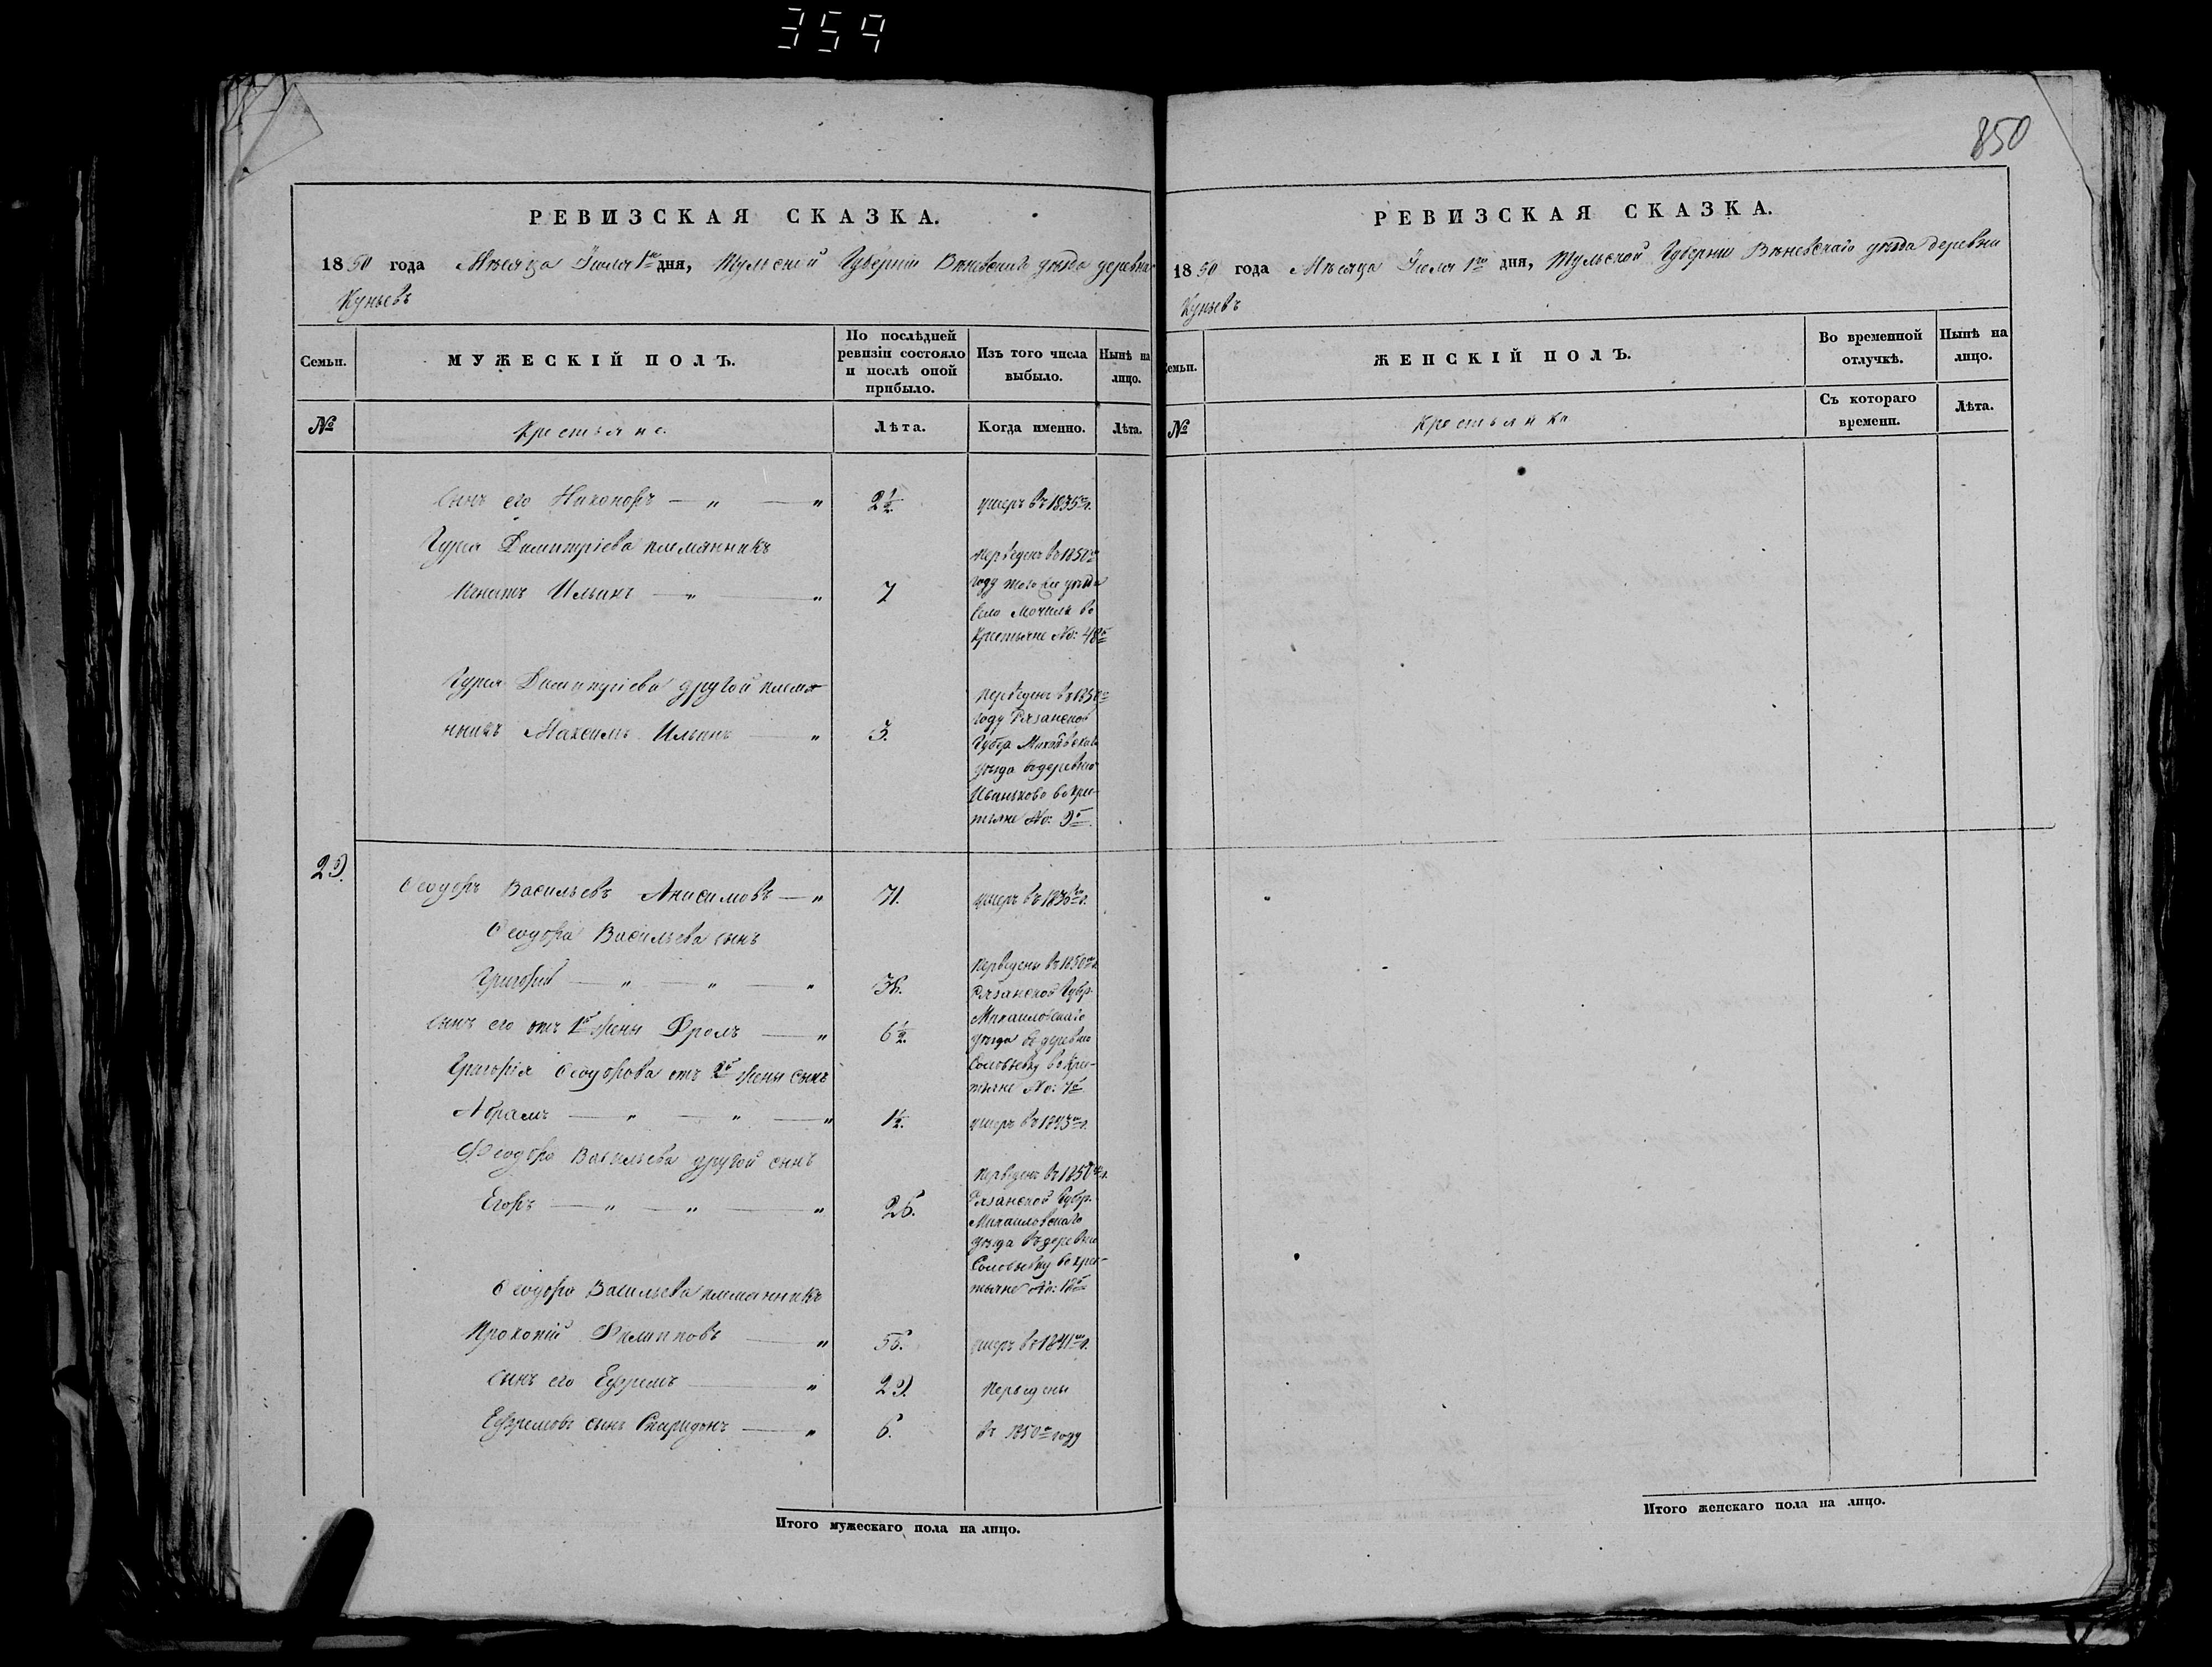 359
850
РЕВИЗСКАЯ СКАЗКА.
1850 года Мѣсяца Іюля 1го дня, Тульской Губерніи Вѣневскаго уѣзда деревни
Куньевъ
Семьи.
МУЖЕСКІЙ ПОЛЪ.
По послѣдней ревизіи состояло и послѣ оной прибыло.
Изъ того числа выбыло.
Нынѣ на лицо.
№
Крестьяне.
Лѣта.
Когда именно.
Лѣта.
Сынъ его Никоноръ — " — " 2½ умеръ въ 1835мъ г.
Гурея Димитріева племянникъ
Игнатъ Ильинъ — " — " 7
переведенъ въ 1850мъ
году того же уѣзда
село Мочилъ во
крестьяне №: 48й
Гурея Димитріева другой племя-
нникъ Максимъ Ильинъ — " 3.
переведенъ въ 1850м
году Рязанской
Губер. Михайловскаго
уѣзда въ деревню
Иваньково во крес-
тьяне №: 9й
29.
Ѳеодоръ Васильевъ Анисимовъ — " 71. умеръ въ 1836мъ г.
Ѳеодора Васильева сынъ
Григорій — " — " — " 36.
Сынъ его отъ 1й жены Фролъ — " 6½.
переведены въ 1850мъ г.
Рязанской Губер.
Михаиловскаго
уѣзда въ деревню
Соловьевку во крес-
тьяне №: 7й
Григорія Ѳеодорова отъ 2й жены сынъ
Абрамъ — " — " — " 1½. умеръ въ 1843мъ г.
Ѳеодора Васильева другой сынъ
Егоръ — " — " — " 26.
переведенъ въ 1850мъ г.
Рязанской Губер.
Михаиловскаго
уѣзда въ деревню
Соловьевку во крес-
тьяне №: 18й
Ѳеодора Васильева племянникъ
Прокопій Филипповъ — " 56. умеръ въ 1841мъ г.
Сынъ его Ефремъ — " 29. переведены
Ефремовъ сынъ Спиридонъ — " 6. въ 1850м году
Итого мужескаго пола на лицо.
РЕВИЗСКАЯ СКАЗКА.
1850 года Мѣсяца Іюля 1го дня, Тульской Губерніи Вѣневскаго уѣзда деревни
Куньевъ
Семьи.
ЖЕНСКІЙ ПОЛЪ.
Во временной отлучкѣ.
Нынѣ на лицо.
№
Крестьянки
Съ котораго времени.
Лѣта.
Итого женскаго пола на лицо.